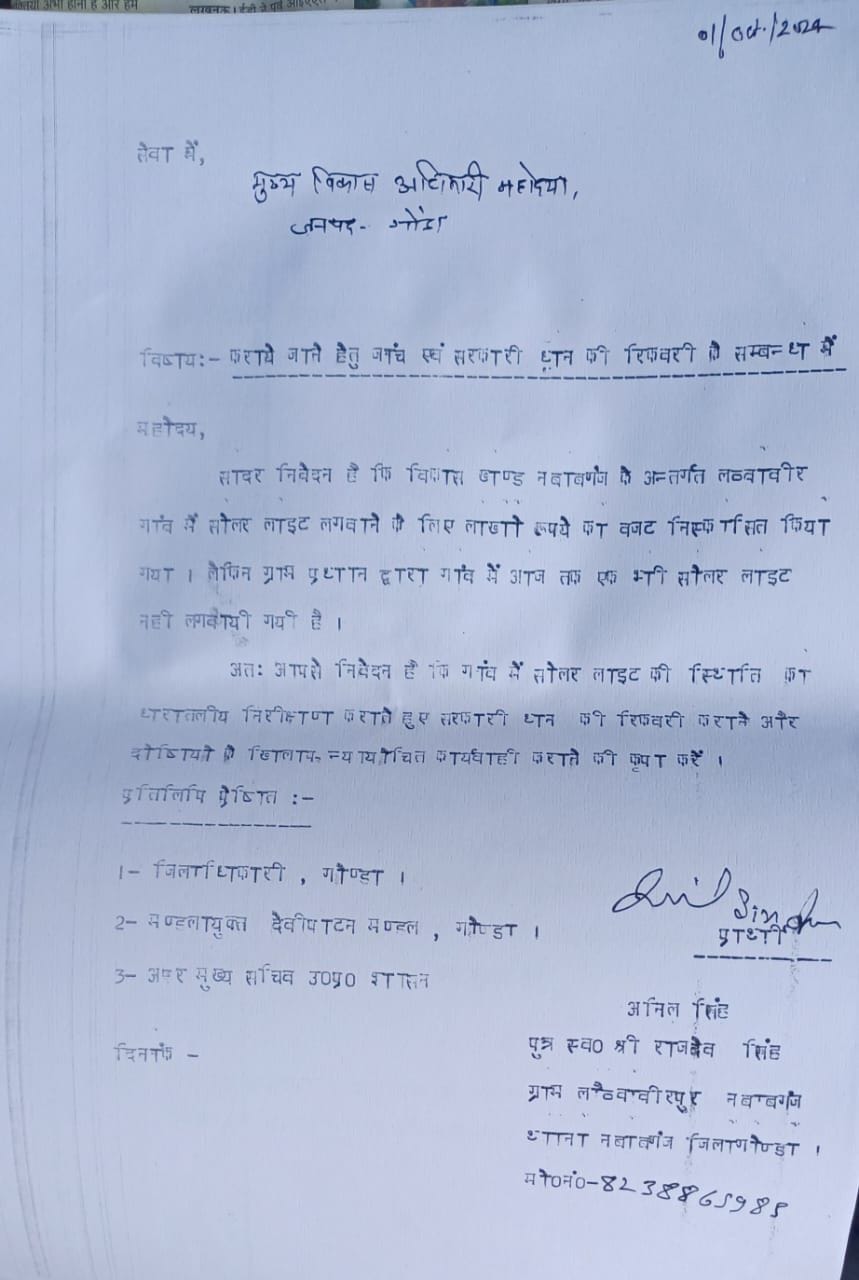 लखनऊ। ईडी ने पूर्व आईएएस
01/Oct./2024
सेवा में,
मुख्य विकास अधिकारी महोदया,
जनपद- गोंडा
विषय:- कराये जाने हेतु जांच एवं सरकारी धन की रिकवरी के सम्बन्ध में
महोदय,
सादर निवेदन है कि विकास खण्ड नबाबगंज के अन्तर्गत लव्वावीर
गांव में सोलर लाइट लगवाने के लिए लाखो रूपये का वजट निस्कासित किया
गया । लेकिन ग्राम प्रधान द्वारा गांव में आज तक एक भी सोलर लाइट
नही लगवायी गयी है ।
अत: आपसे निवेदन है कि गांव में सोलर लाइट की स्थिति का
धरातलीय निरीक्षण कराते हुए सरकारी धन की रिकवरी कराने और
दोषियो के खिलाफ न्यायोचित कार्यवाही कराने की कृपा करें ।
प्रतिलिपि प्रेषित :-
1- जिलाधिकारी , गोण्डा ।
2- मण्डलायुक्त देवीपाटन मण्डल , गोण्डा ।
3- अपर मुख्य सचिव उ0प्र0 शासन
Anil Singh
प्रार्थी
अनिल सिंह
दिनांक -
पुत्र स्व0 श्री राजदेव सिंह
ग्राम लौव्वावीरपुर नबाबगंज
थाना नबाबगंज जिलागोण्डा ।
मो0नं0-8238865985